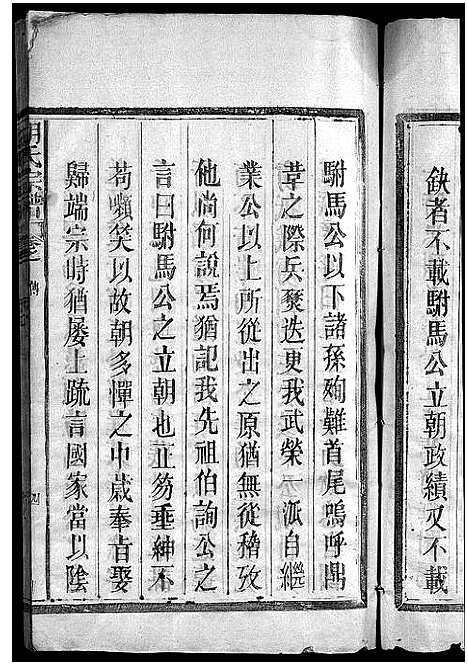 缺者不載駙馬公立朝政績又不載
駙馬公以下諸孫殉難首尾嗚呼鼎
革之際兵燹迭更我武榮一派自繼
業公以上所從出之原猶無從稽攷
他尚何說焉猶記我先祖伯詢公之
言曰駙馬公之立朝也正笏垂紳不
苟嚬笑以故朝多憚之中歲奉旨娶
歸端宗時猶屡上疏言國家當以陰
氏宗譜 卷之 傳 四